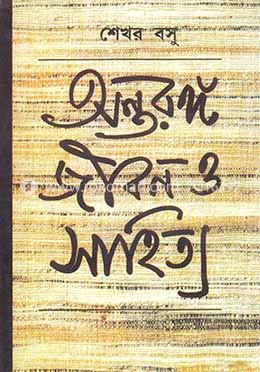 শেখর বসু
অন্তরঙ্গ
জীবন ও
সাহিত্য